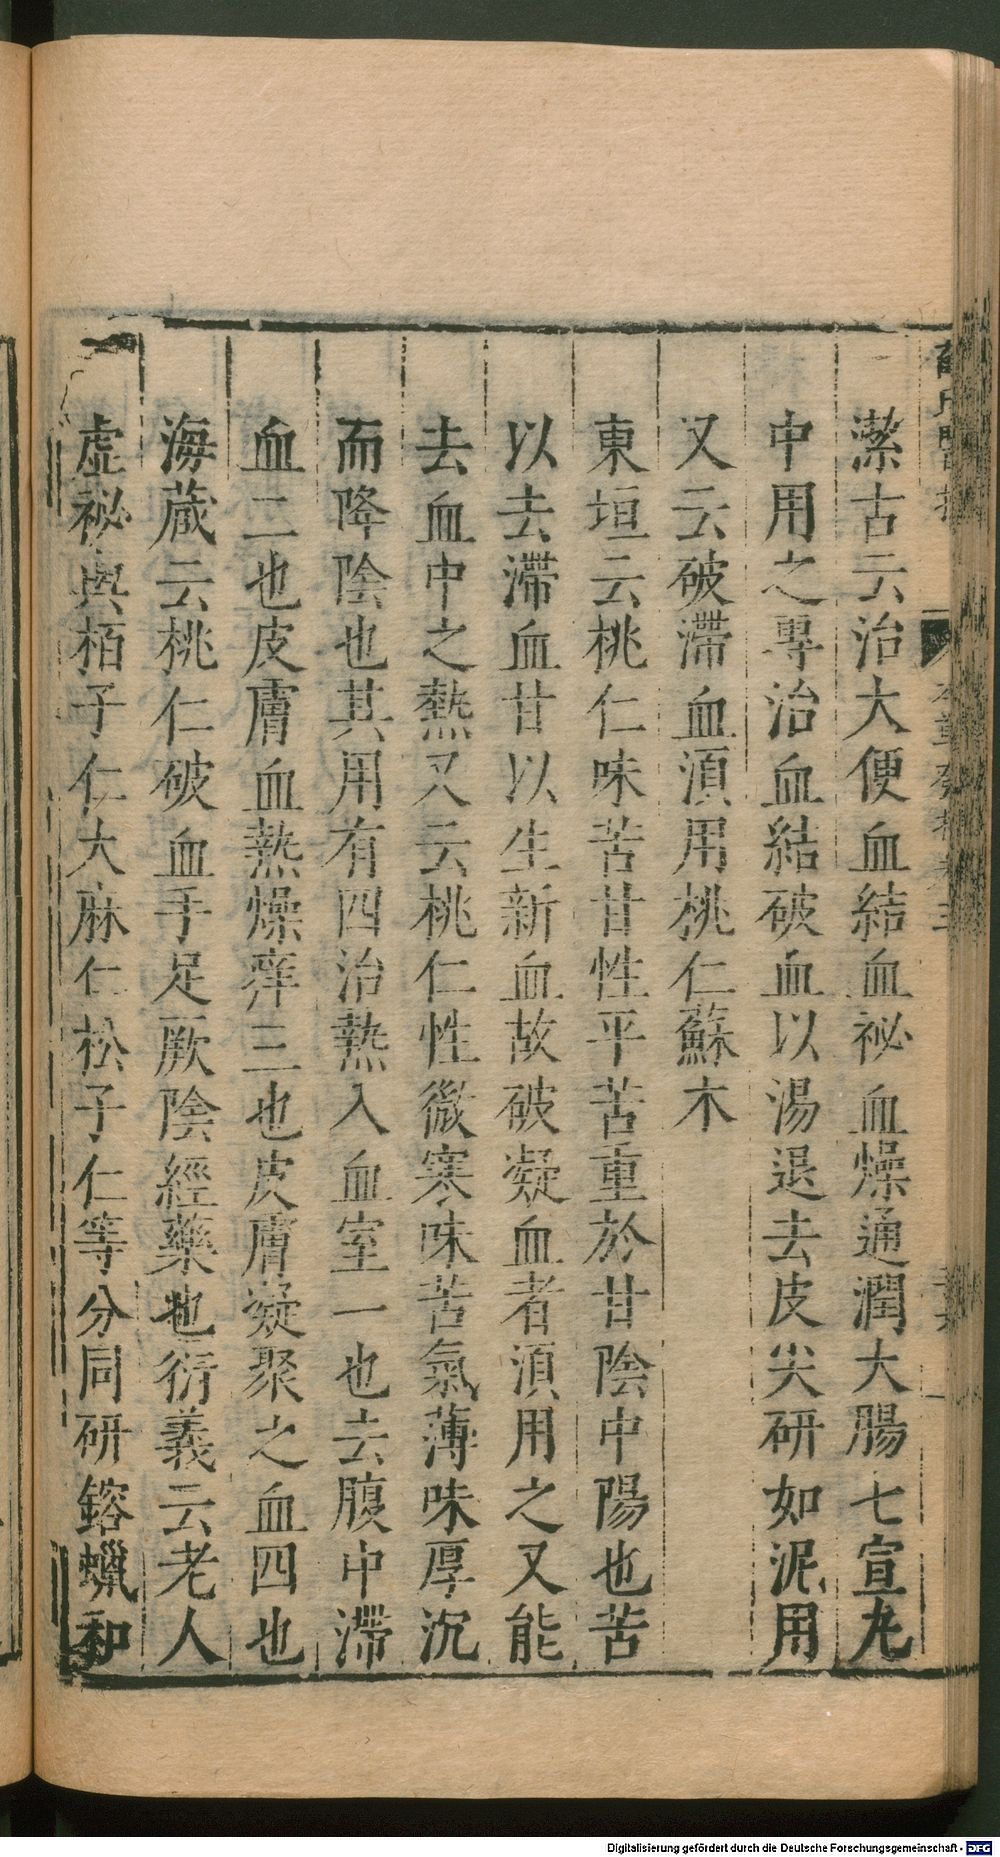 潔古云治大便血結血祕血燥通潤大腸七宣丸
中用之專治血結破血以湯退去皮尖研如泥用
又云破滯血須用桃仁蘇木
東垣云桃仁味苦甘性平苦重於甘陰中陽也苦
以去滯血甘以生新血故破凝血者須用之又能
去血中之熱又云桃仁性微寒味苦氣薄味厚沉
而降陰也其用有四治熱入血室一也去腹中滯
血二也皮膚血熱燥痒三也皮膚凝聚之血四也
海藏云桃仁破血手足厥陰經藥也衍義云老人
虛祕與栢子仁大麻仁松子仁等分同研鎔蠟和
Digitalisierung gefördert durch die Deutsche Forschungsgemeinschaft - DFG